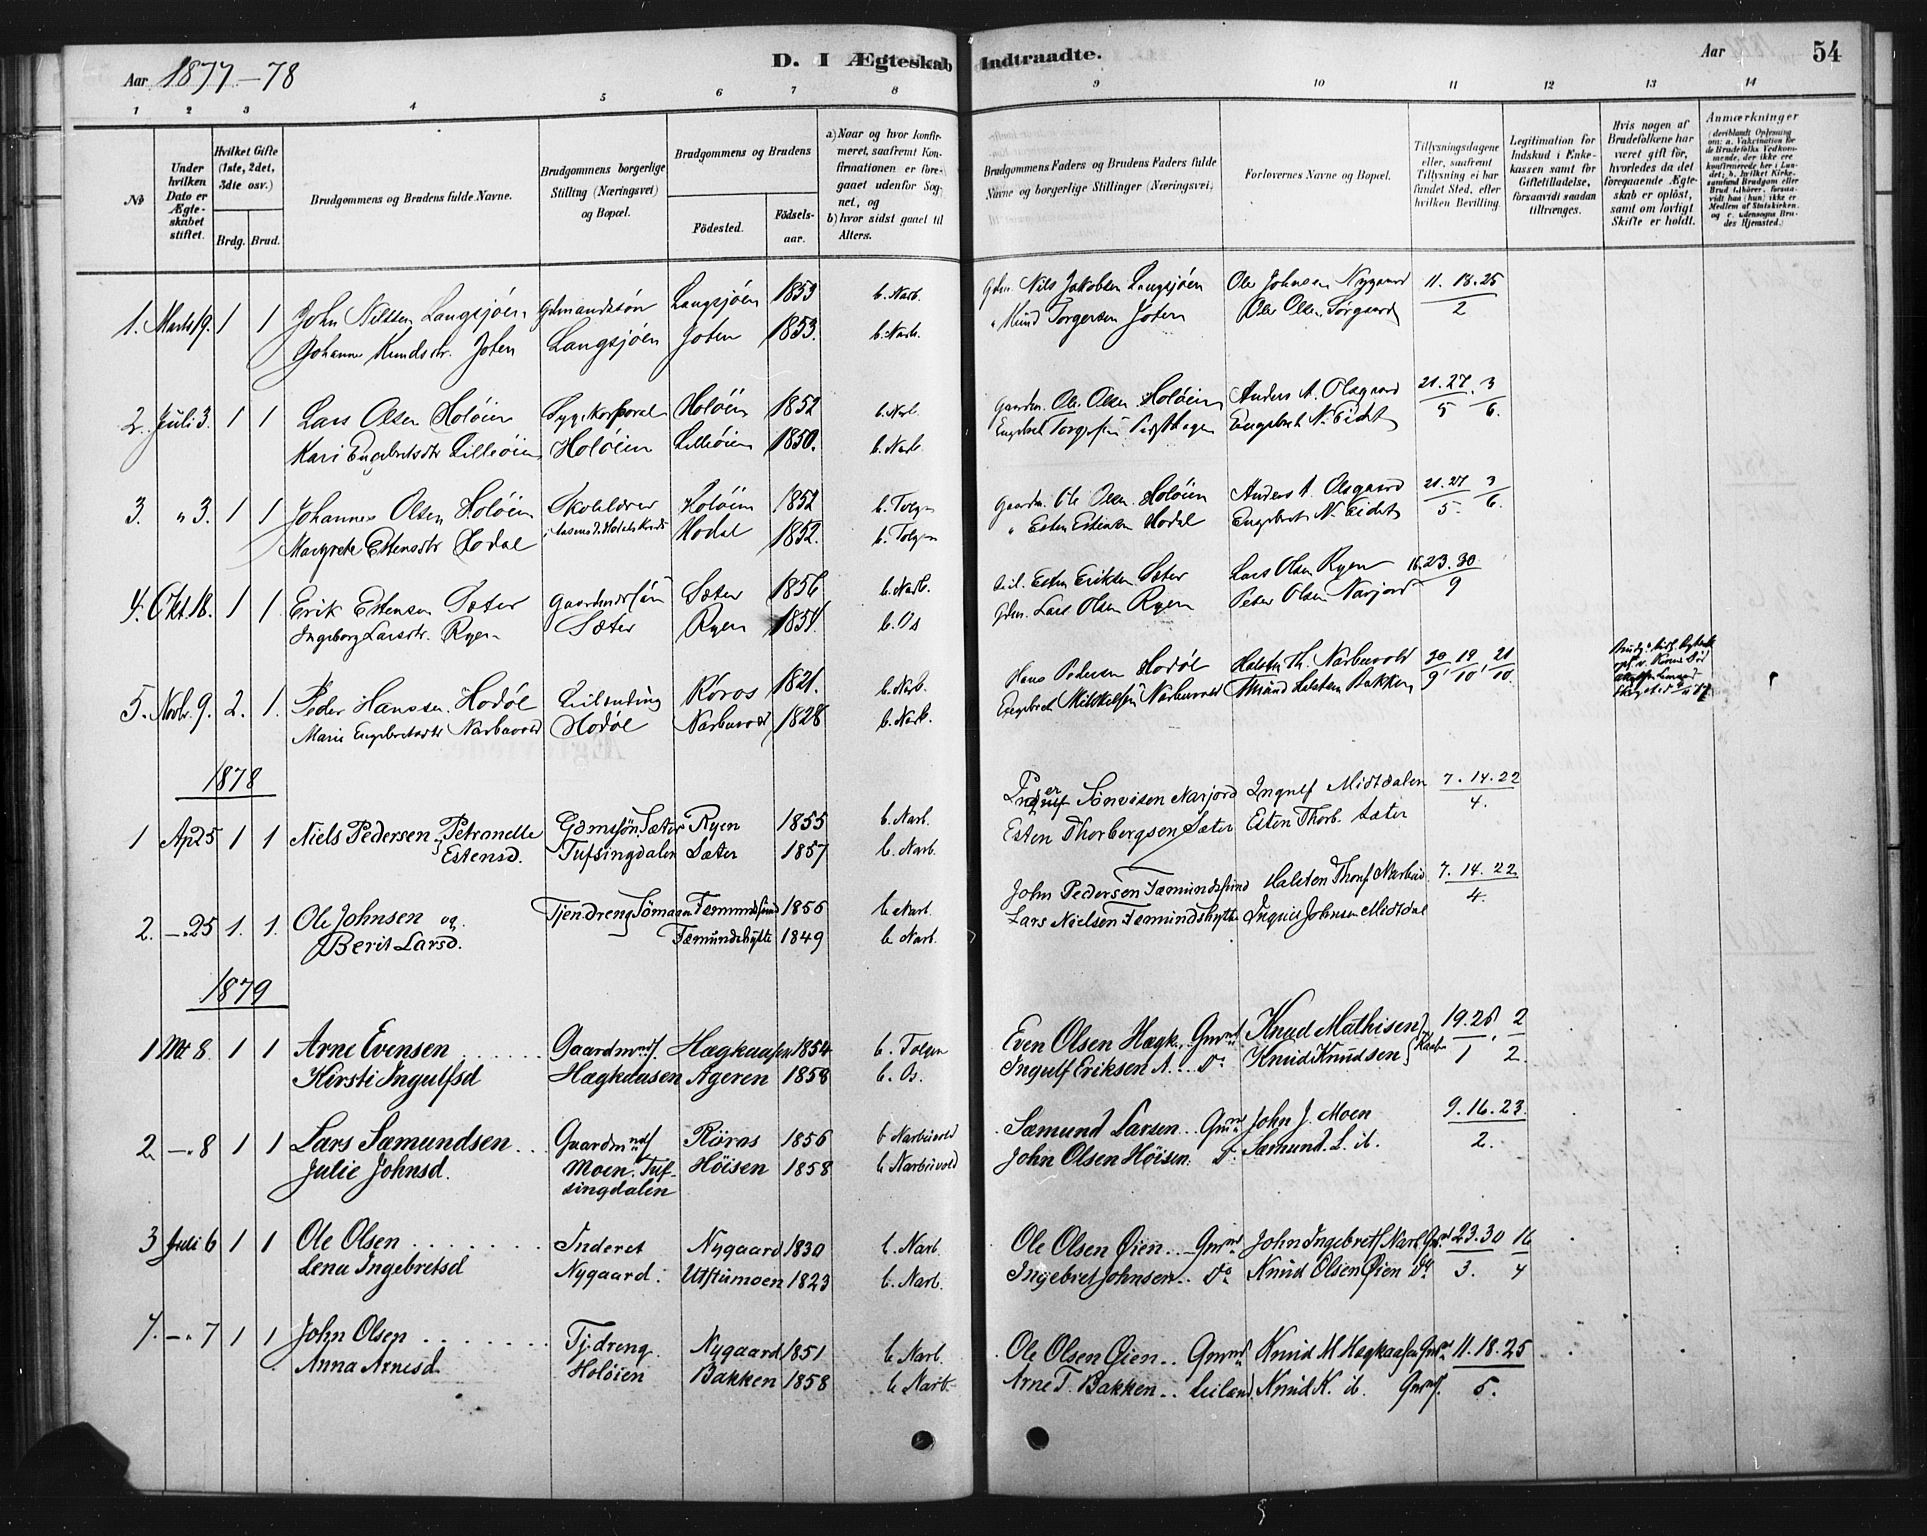 D. I Ægteskab Indtraadte.
Aar 1877-78
Aar
54
1 2 3 4 5 6 7 8 9 10 11 12 13 14
No
Under hvilken Dato er Ægteskabet stiftet.
Hvilket Gifte (1ste, 2det, 3die osv.)
Brdg. Brud.
Brudgommens og Brudens fulde Navne.
Brudgommens borgerlige Stilling (Næringsvei) og Bopæl.
Brudgommens og Brudens
Födested.
Födselsaar.
a) Naar og hvor konfirmeret, saafremt Konfirmationen er foregaaet udenfor Sognet, og
b) hvor sidst gaaet til Alters.
Brudgommens Faders og Brudens Faders fulde Navne og borgerlige Stillinger (Næringsvei)
Forlovernes Navne og Bopæl.
Tillysningsdagene eller, saafremt Tillysning ei har fundet Sted, efter hvilken Bevilling.
Legitimation for Indskud i Enkekassen samt for Giftetilladelse, forsaavidt saadan tiltrænges.
Hvis nogen af Brudefolkene har været gift för, hvorledes da det foregaaende Ægteskab er oplöst, samt om lovligt Skifte er holdt.
Anmærkninger
1. Marts 19. 1 1 John Nilsen Langsjöen Gdmandssön Langsjöen 1853 b. Narb. Gdm. Nils Jakobsen Langsjöen Ole Johnsen Nygaard 11. 18. 25
Johanne Knudsdtr. Joten Langsjöen Joten 1853. b. Narb. " Knud Torgersen Joten Ole Olsen Sörgaard 2
2. Juli 3. 1 1 Lars Olsen Holöien Holöien 1852 b. Narb. Gaardm. Ole Olsen Holöien Anders A. Olsgaard 21. 27. 3
Mari Engebretsdtr Lilleöien Holöien Lilleöien 1850. b. Narb. Engebret Engebret N. Eidet 5 6.
3. " 3. 1 1 Johannes Olsen Holöien Skolelærer Holöien 1852 b. Tolgen Gaardm. Ole Olsen Holöien Anders A. Olsgaard 21. 27 3
Margrete Estensdtr Hodal Hodal 1852. b. Tolgen " Esten Estensen Hodal Engebret N. Eidet 5 6.
4. Okt. 18. 1 1 Erik Estensen Sæter Gaardmdssön Sæter 1856 b. Narb. Esten Eriksen Sæter Lars Olsen Ryen 16. 23. 30
Ingeborg Larsdtr. Ryen Sæter Ryen 1854. b. Os Gdm. Lars Olsen Ryen Peter Olsen Narjord 9
5. Novbr. 9. 2. 1. Peder Hanssen Hodöl Röros 1821. b. Narb. Hans Pedersen Hodöl Halsten Th. Narbuvold 30 19 21
Marie Engebretsdtr Narbuvold Hodöl Narbuvold 1828 b. Narb. Engebret Mikkelsen Narbuvold Bakken 9, 10, 10.
1878
1 Ap 25 1 1 Niels Pedersen Petronelle Gdmssön Sæter Ryen 1855 b. Narb. Peder Sönvisen Narjord Ingulf Midtdalen 7. 14. 22
Estensd. Tufsingdalen Sæter 1857 b. Narb. Esten Thorbergsen Sæter Esten Thorb. Sæter 4.
2. -"-25 1. 1. Ole Johnsen og Tjendreng Sömaen Fæmundsund 1856 b. Narb. John Pedersen Fæmundssund Halsten 7. 14. 22
Berit Larsd. Fæmundshytte 1849 b. Narb. Lars Nielsen Fæmundshytte Johnsen Midtdal 4.
1879
1 Mt 8. 1 1 Arne Evensen Gaardm Hægkaasen 1854 b. Tolgen Even Olsen Hægk. Knud Mathisen 19. 26 2
Kirsti Ingulfsd Hægkaasen Ageren 1858 b. Os. Ingulf Eriksen A. Do Knud Knudsen 1 2.
2 -"- 8 1 1 Lars Sæmundsen Gaardm Röros 1856 b Narbuvold Sæmund Larsen John J. Moen 9. 16. 23.
Julie Johnsd. Moen. Tuf- Höisen 1858 b Narbuvold John Olsen Höisen. Do Sæmund. L. ib. 2.
singdalen
3 Juli 6 1 1 Ole Olsen Inderst Nygaard 1830 b. Narb. Ole Olsen Öien 23. 30 16
Lena Ingebretsd Nygaard. Utstumoen 1823 b. Narb. Ingebret Johnsen Do Knud Olsen Öien Do 3. 4
7. -"-7 1 1 John Olsen Tjdreng. Nygaard 1851 b Narb. Ole Olsen Öien Knud M Hægkaasen 11. 18. 25
Anna Arnesd Holöien Bakken 1858 b Narb. Arne T. Bakken Leiland. Knud K. ib. 5.